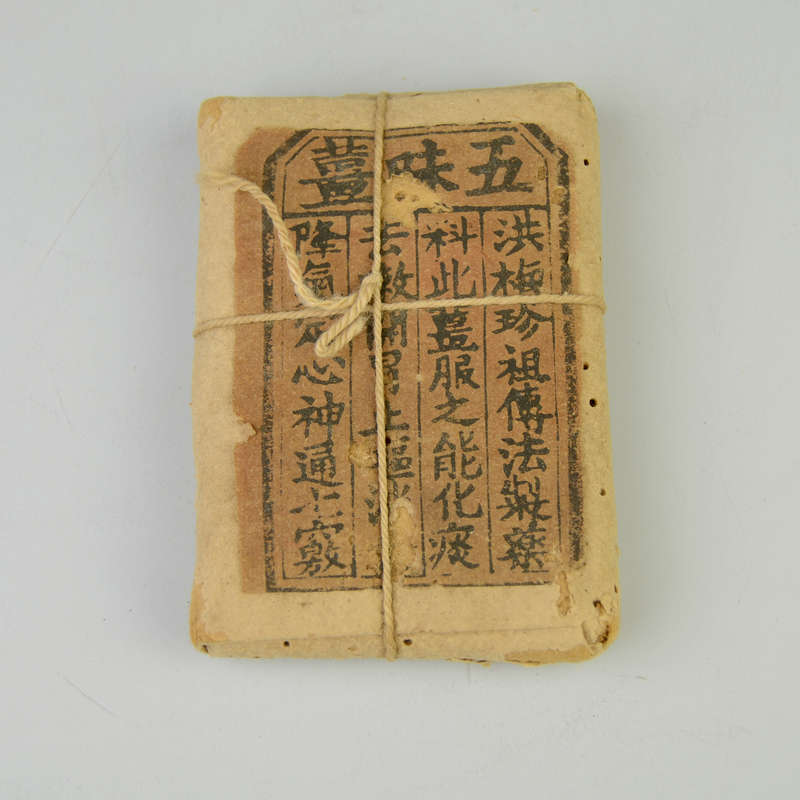 五味薑
洪梅珍祖傳法製藥
料此薑服之能化痰
去嗽開胃止嘔消
降氣定心神通七竅